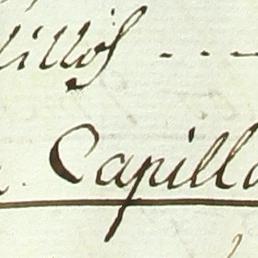 illos ---
Capilla